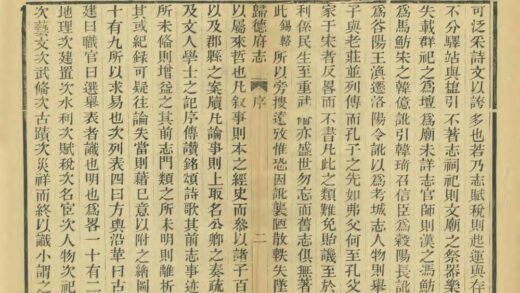 可泛宋詩文以誇多也若乃志賦稅則起運與存
不分驛站與擡引不著志祠祀則文廟之祭器樂
失載群祀之為壇為廟未詳志官師則漢之馮魴
為馬魴宋之韓億訛引韓琦召信臣為穀陽長訛
為谷陽王渙遷洛陽令訛以為考城志人物則舉
子與老莊並列傳而孔子之先如弗父何至孔父
家于宋者反畧而不書凡此之類難免貽譏至於
利係民生至重亦盛世勿忘而舊志俱無著
此錫輅所以旁搜遠攷惟恐因訛襲陋散軼失墜
歸德府志 序 二
以屬來哲也凡叙事則本之經史而叅以諸子百
以及郡縣之案牘凡論事則上取名公卿之奏疏
及文人學士之記序傳讃銘頌詩歌其前志事迹
所未備則增益之其前志門類之所未明則離析
其或紀錄可疑往論失當則藉己意以附之繪圖
十有九所以求易也次列表四曰方輿沿革曰古
建曰職官曰選舉表者識也明也為畧一十有二
地理次建置次水利次賦稅次名宦次人物次祀
次藝文次武備次古蹟次災祥而終以識小謂之